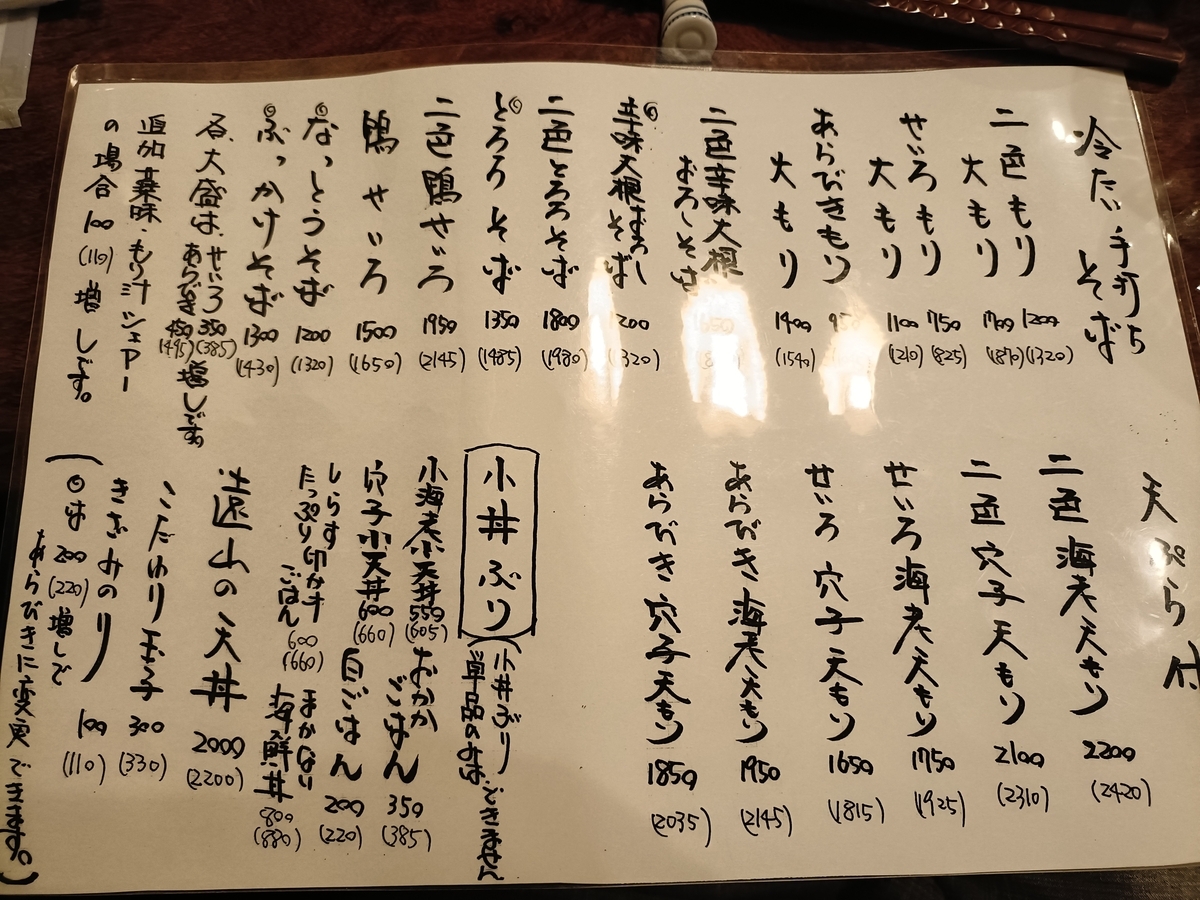 冷たい手打ちそば
二色もり 1200 (1320)
大もり 1700 (1870)
せいろもり 750 (825)
大もり 1100 (1210)
あらびきもり
大もり 1400 (1540)
二色辛味大根おろしそば
◎辛味大根おろしそば 1200 (1320)
二色とろろそば 1800 (1980)
◎とろろそば 1350 (1485)
二色鴨せいろ 1950 (2145)
鴨せいろ 1500 (1650)
◎なっとうそば 1200 (1320)
◎ぶっかけそば 1300 (1430)
各、大盛は、せいろ 350 (385) あらびき 450 (495) 増しです。
追加薬味・もり汁シェアー
の場合 100 (110) 増しです。
天ぷら付
二色海老天もり 2200 (2420)
二色穴子天もり 2100 (2310)
せいろ海老天もり 1750 (1925)
せいろ穴子天もり 1650 (1815)
あらびき海老天もり 1950 (2145)
あらびき穴子天もり 1850 (2035)
小丼ぶり
(小丼ぶり
単品のみは、できません)
小海老小天丼 550 (605)
おかかごはん 350 (385)
穴子小天丼 600 (660)
白ごはん 200 (220)
しらす
たっぷり卵かけ
ごはん 600 (660)
まかない
海鮮丼 800 (880)
遠山の天丼 2000 (2200)
こだわり玉子 300 (330)
きざみのり 100 (110)
(◎は 200 (220) 増しで
あらびきに変更できます。)